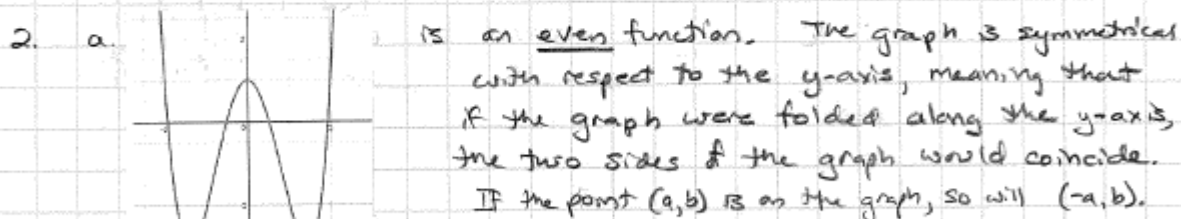 2. a. is an even function. The graph is symmetrical
with respect to the y-axis, meaning that
if the graph were folded along the y-axis,
the two sides of the graph would coincide.
If the point (a,b) is on the graph, so will (-a,b).